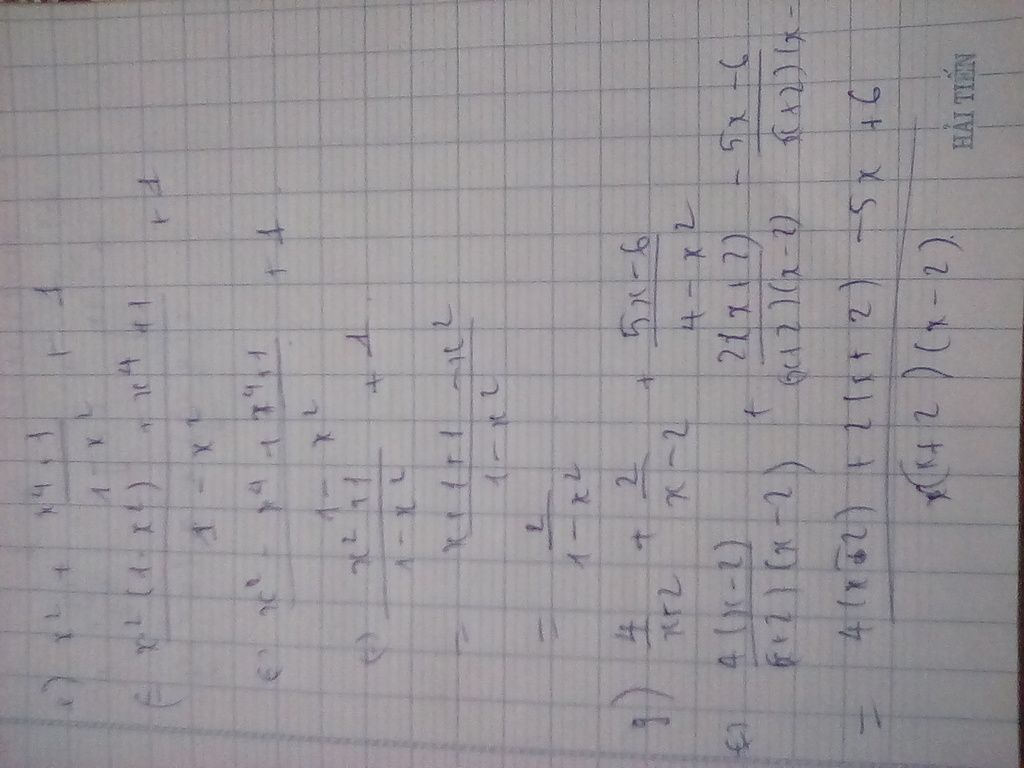 x² + x⁴+1 / 1-x² + 1
(=) x²(1-x²) + x⁴+1 / 1-x² + 1
x² - x⁴ + x⁴+1 / 1-x² + 1
(=) x²+1 / 1-x² + 1
= x+1+1-x² / 1-x²
= 2 / 1-x²
g) 4 / x+2 + 2 / x-2 + 5x-6 / 4-x²
(=) 4(x-2) / (x+2)(x-2) + 2(x+2) / (x+2)(x-2) - 5x-6 / (x+2)(x-
= 4(x-2) + 2(x+2) - 5x + 6 / (x+2)(x-2)
HẢI TIẾN